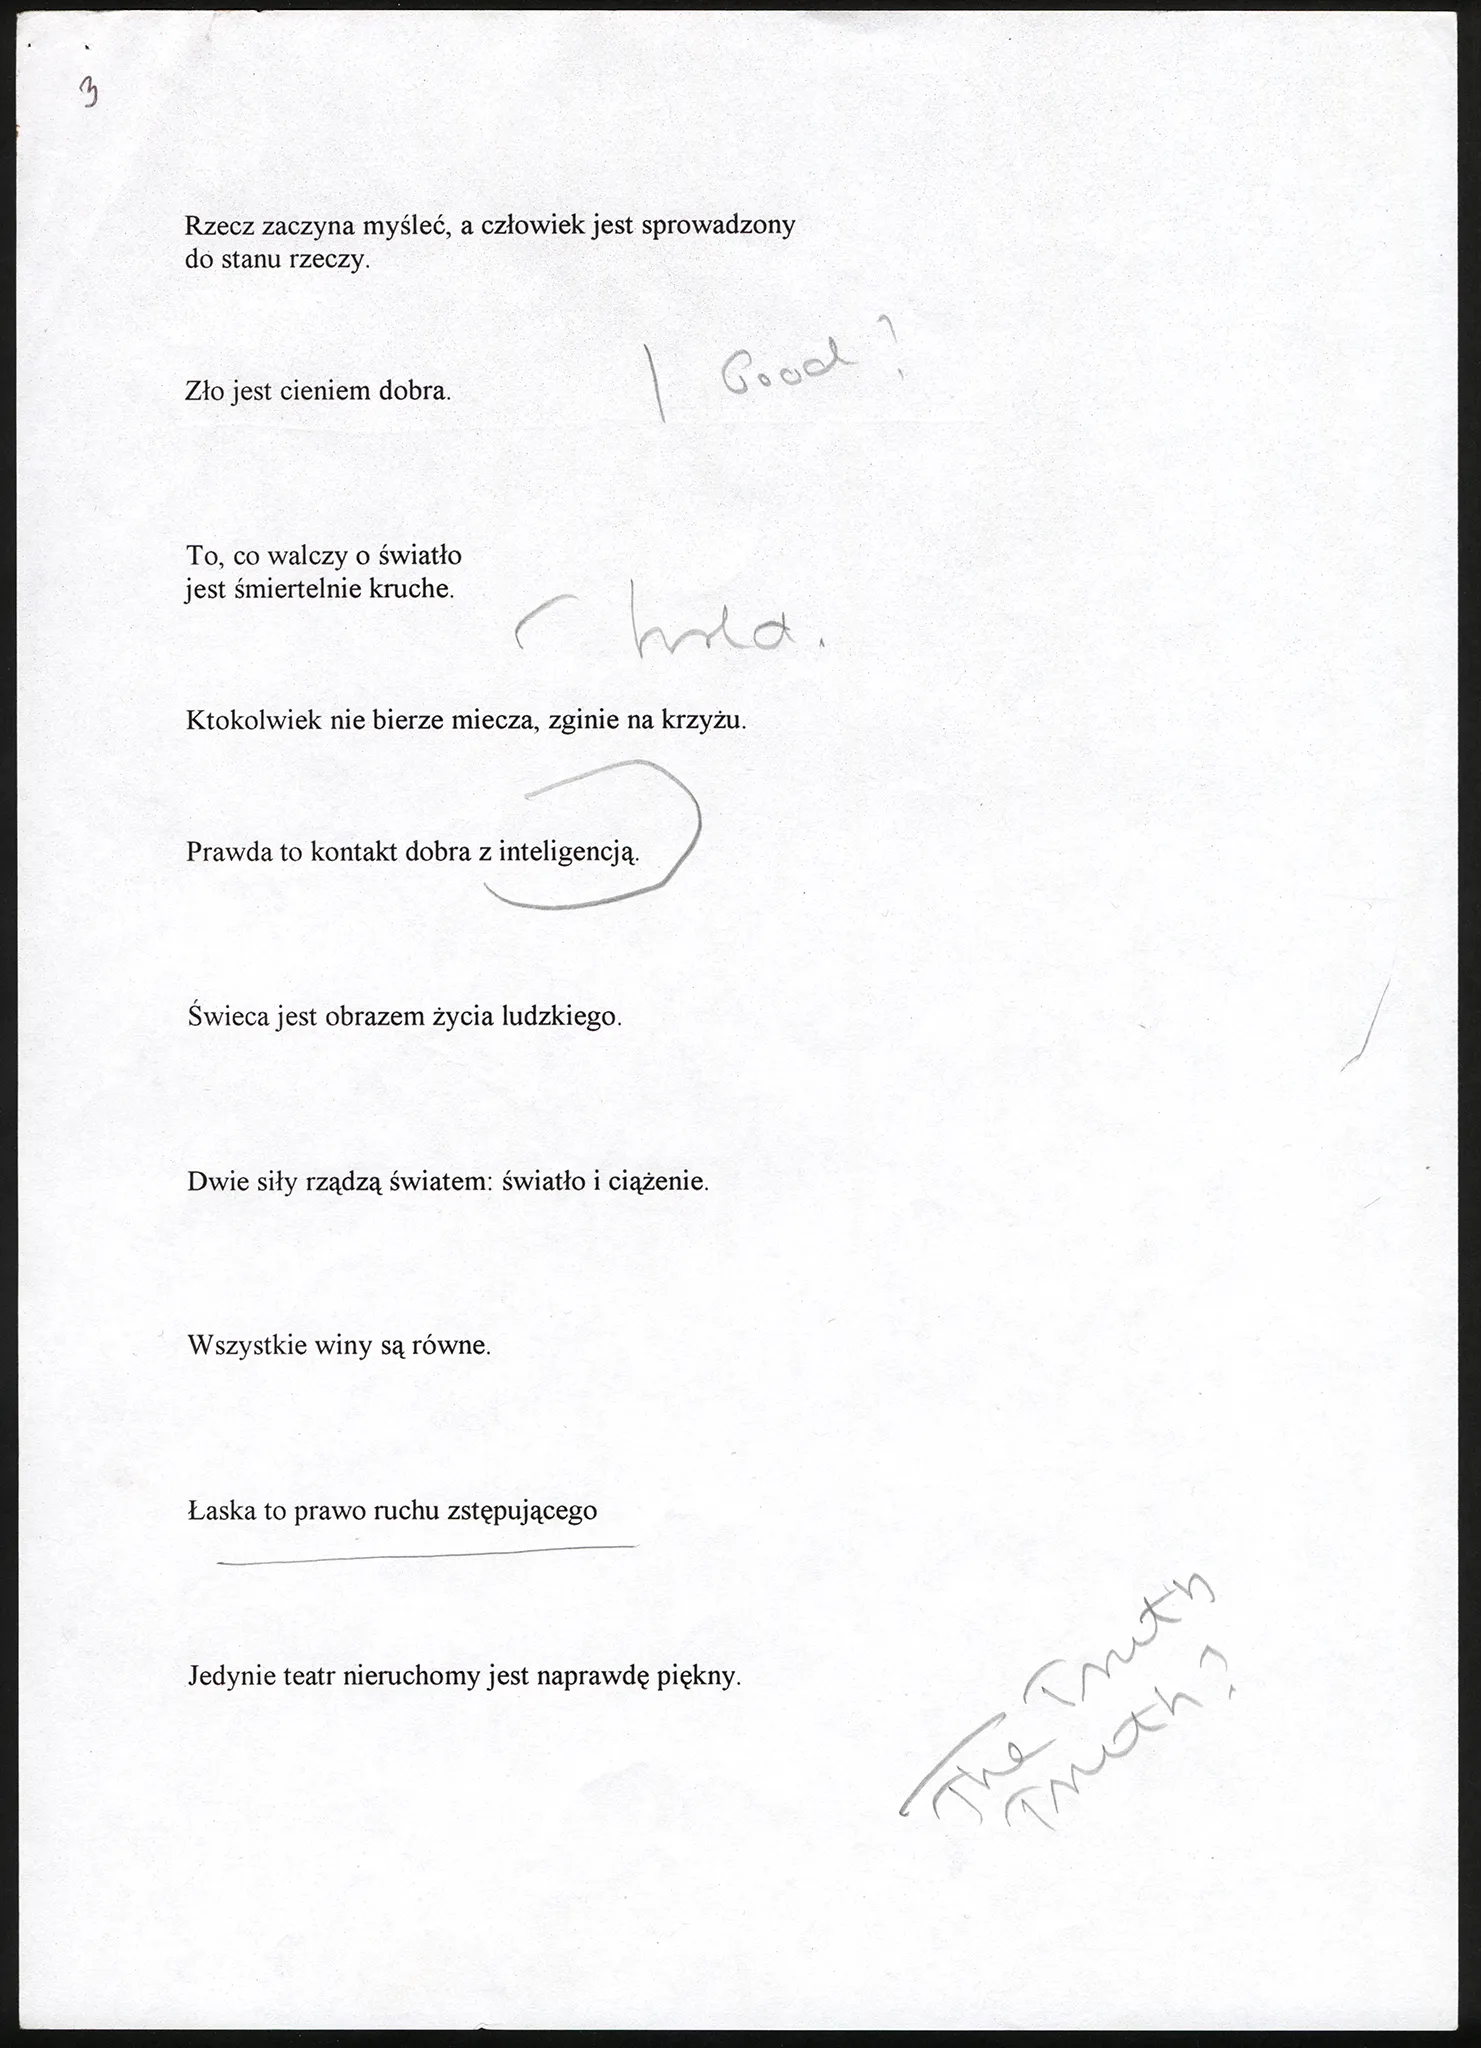 3
Rzecz zaczyna myśleć, a człowiek jest sprowadzony
do stanu rzeczy.
Good?
Zło jest cieniem dobra.
To, co walczy o światło
jest śmiertelnie kruche.
Ktokolwiek nie bierze miecza, zginie na krzyżu.
Prawda to kontakt dobra z inteligencją.
Świeca jest obrazem życia ludzkiego.
Dwie siły rządzą światem: światło i ciążenie.
Wszystkie winy są równe.
Łaska to prawo ruchu zstępującego
Jedynie teatr nieruchomy jest naprawdę piękny.
The Truth
Truth?